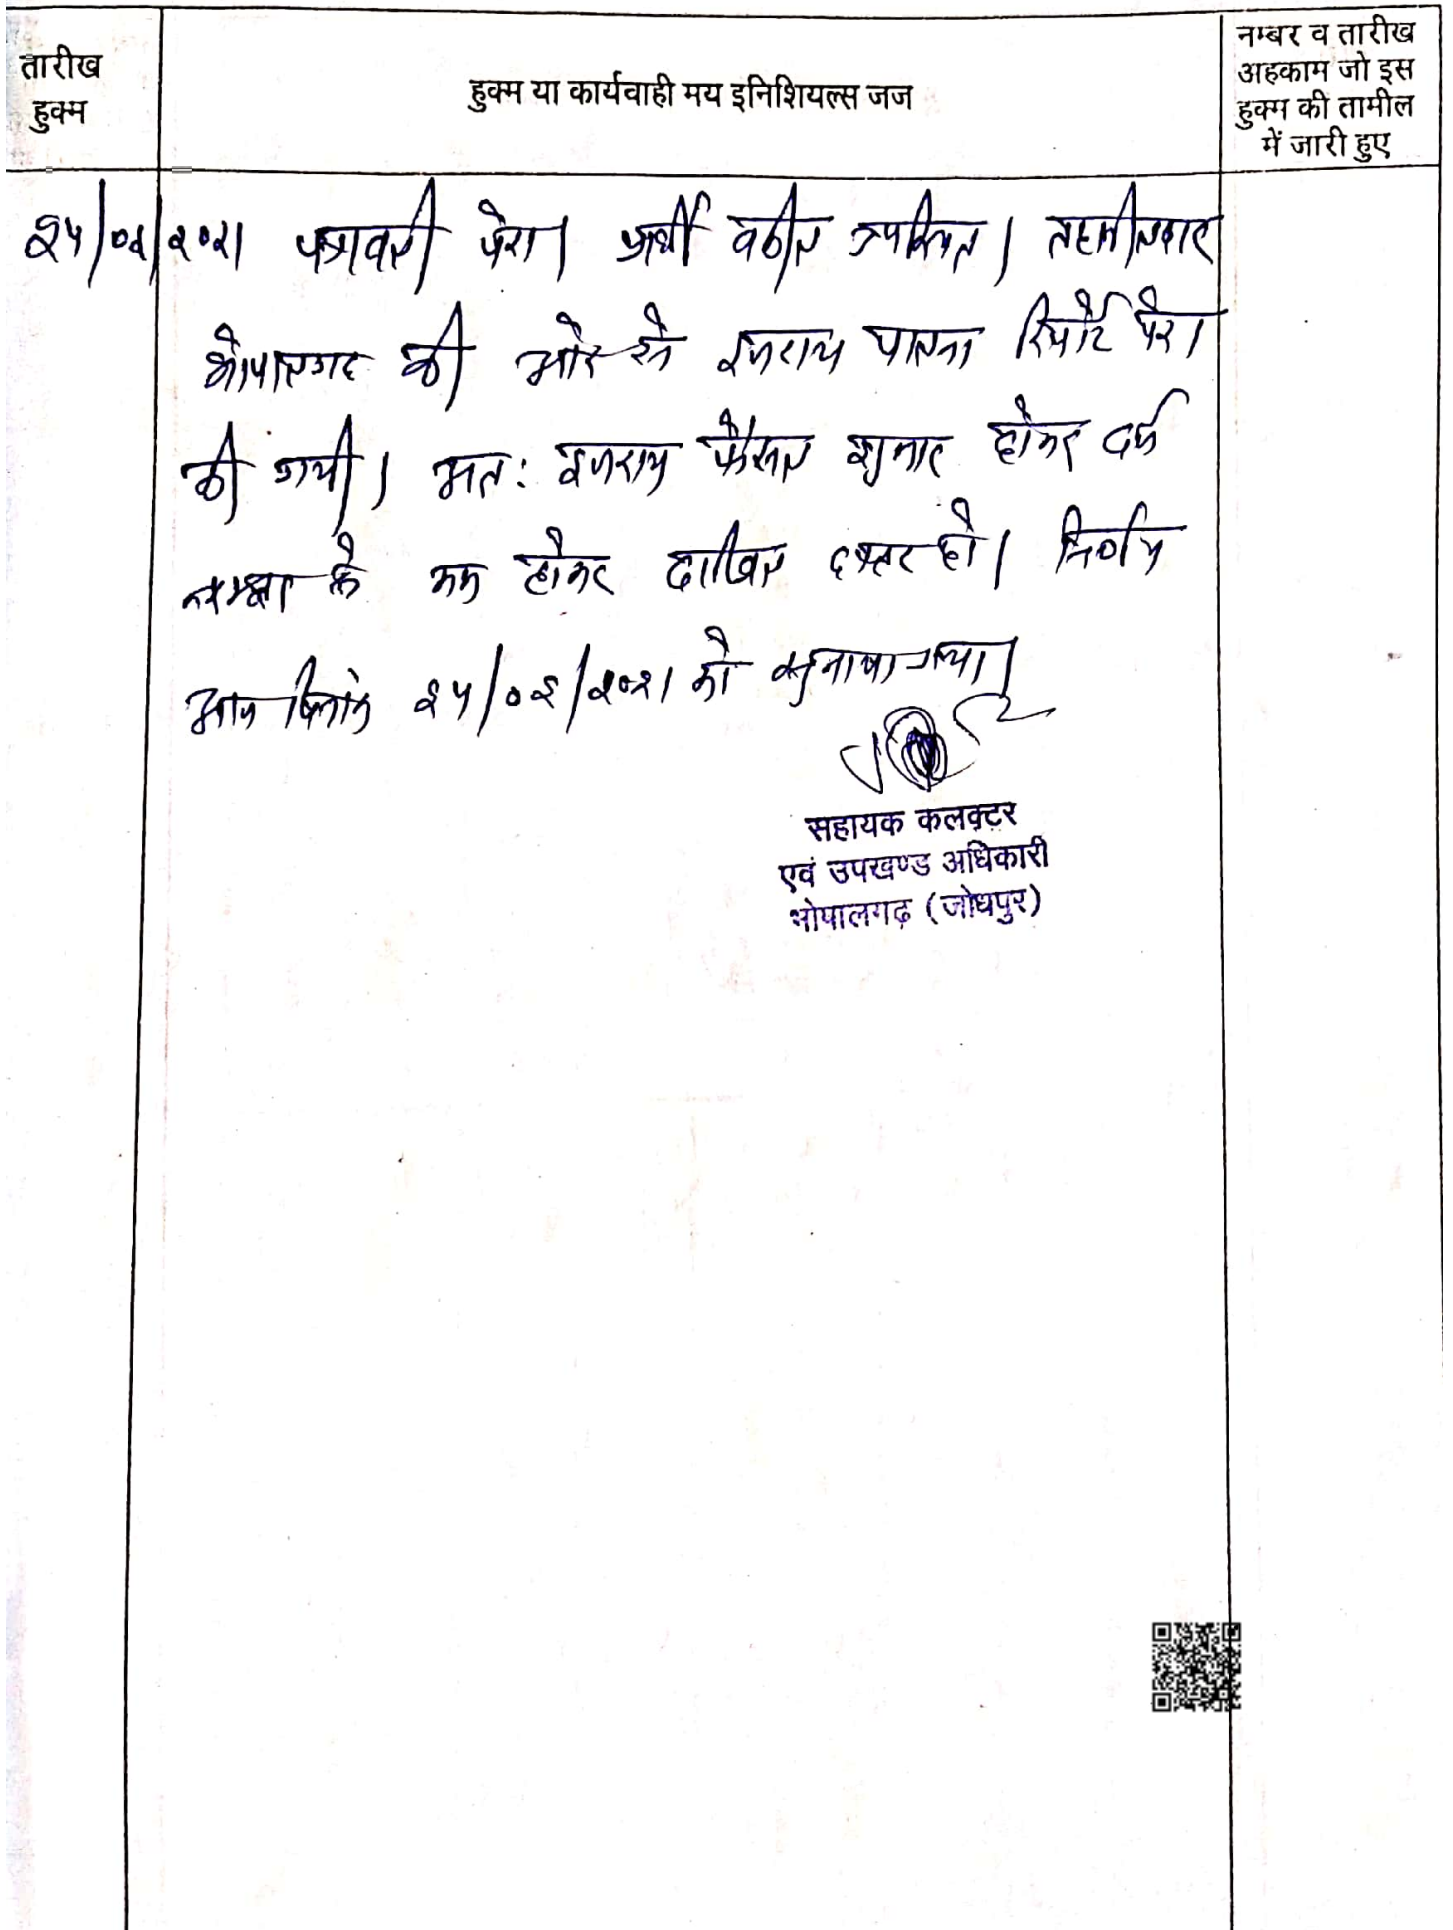 तारीख
हुक्म
हुक्म या कार्यवाही मय इनिशियल्स जज
नम्बर व तारीख
अहकाम जो इस
हुक्म की तामील
में जारी हुए
पत्रावली पेश। प्रार्थी वकील उपस्थित। तहसीलदार
भोपालगढ की ओर से इजराय पालना रिपोर्ट पेश
की गयी। अतः इजराय फैसल शुमार होकर दर्ज
नम्बर से कम होकर दाखिल दफ्तर हो। निर्णय
आज दिनांक को सुनाया गया।
सहायक कलक्टर
एवं उपखण्ड अधिकारी
भोपालगढ़ (जोधपुर)